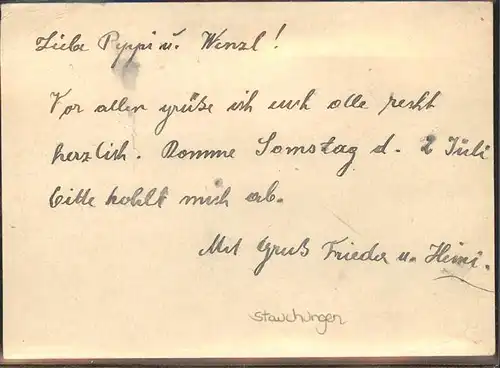 Liebe Peppi u. Wenzl!
Vor allen grüße ich euch alle recht
herzlich. Komme Somstag d. 2 Juli
bitte hohlt mich ab.
Mit Gruß Frieda u. Heini.
Stauchungen